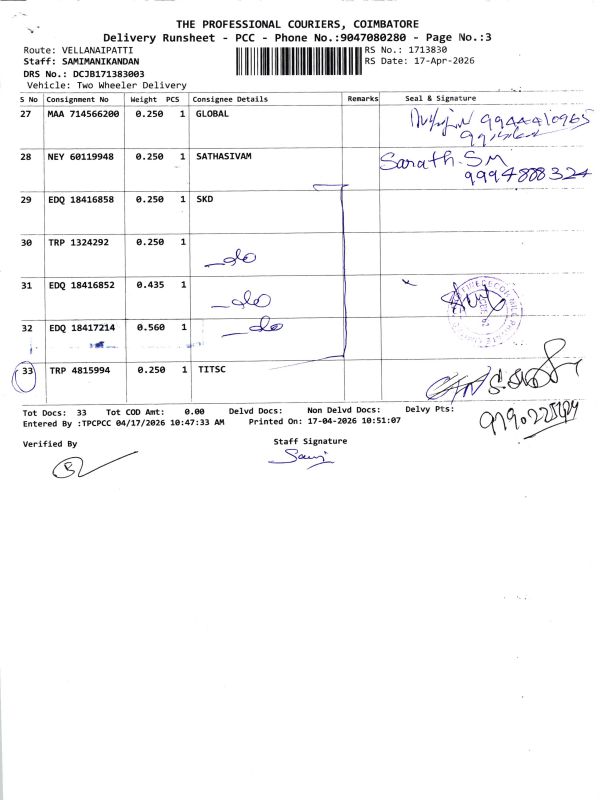 THE PROFESSIONAL COURIERS, COIMBATORE
Delivery Runsheet - PCC - Phone No.:9047080280 - Page No.:3
Route: VELLANAIPATTI RS No.: 1713830
Staff: SAMIMANIKANDAN RS Date: 17-Apr-2026
DRS No.: DCJB171383003
Vehicle: Two Wheeler Delivery
S No Consignment No Weight PCS Consignee Details Remarks Seal & Signature
27 MAA 714566200 0.250 1 GLOBAL 9944410965
28 NEY 60119948 0.250 1 SATHASIVAM Sarath.SM
9994888324
29 EDQ 18416858 0.250 1 SKD
30 TRP 1324292 0.250 1
do
31 EDQ 18416852 0.435 1
do
32 EDQ 18417214 0.560 1 do
33 TRP 4815994 0.250 1 TITSC
Tot Docs: 33 Tot COD Amt: 0.00 Delvd Docs: Non Delvd Docs: Delvy Pts:
Entered By :TPCPCC 04/17/2026 10:47:33 AM Printed On: 17-04-2026 10:51:07
Verified By Staff Signature